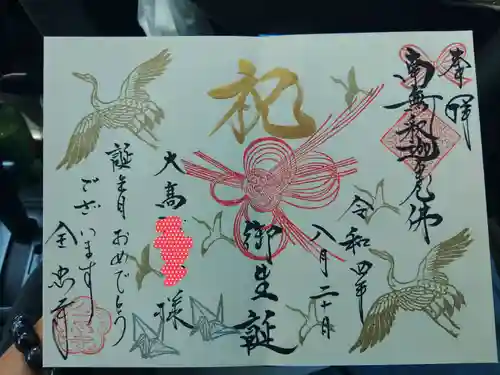 奉拝
南無釈迦牟尼佛
令和四年
八月二十日
祝
御生誕
大高
様
誕生日おめでとう
ございます
全忠寺